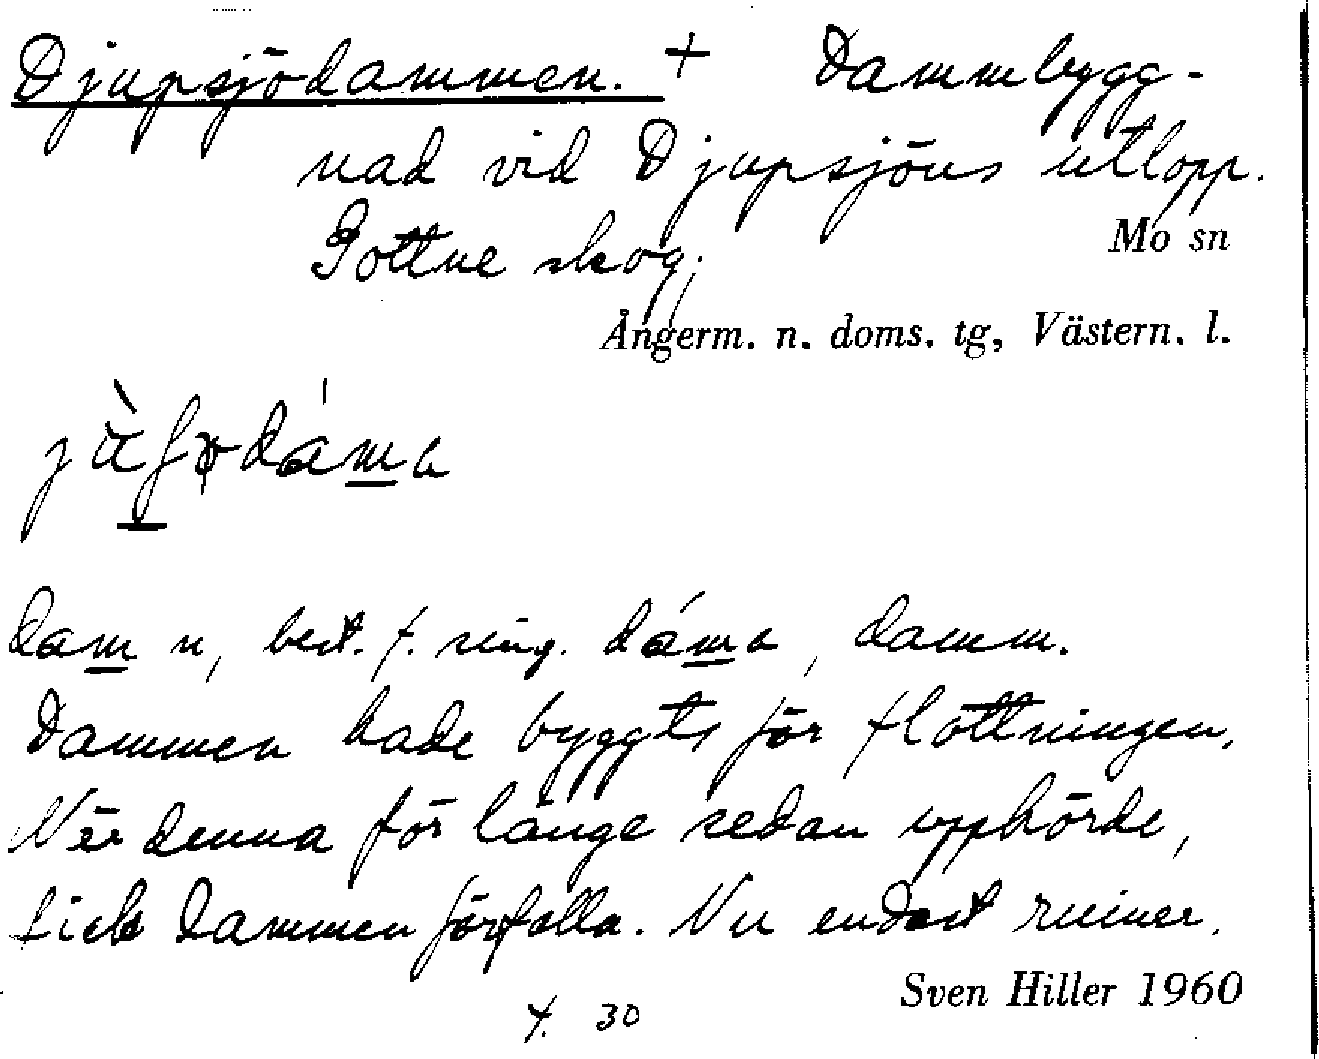 Djupsjödammen. + Dammbygg-
nad vid Djupsjöns utlopp.
Gottne skog.
Mo sn
Ångerm. n. doms. tg, Västern. l.
dam n, best. f. sing. dáma, damm.
Dammen hade byggts för flottningen.
När denna för länge sedan upphörde,
fick dammen förfalla. Nu endast ruiner.
Sven Hiller 1960
f. 30